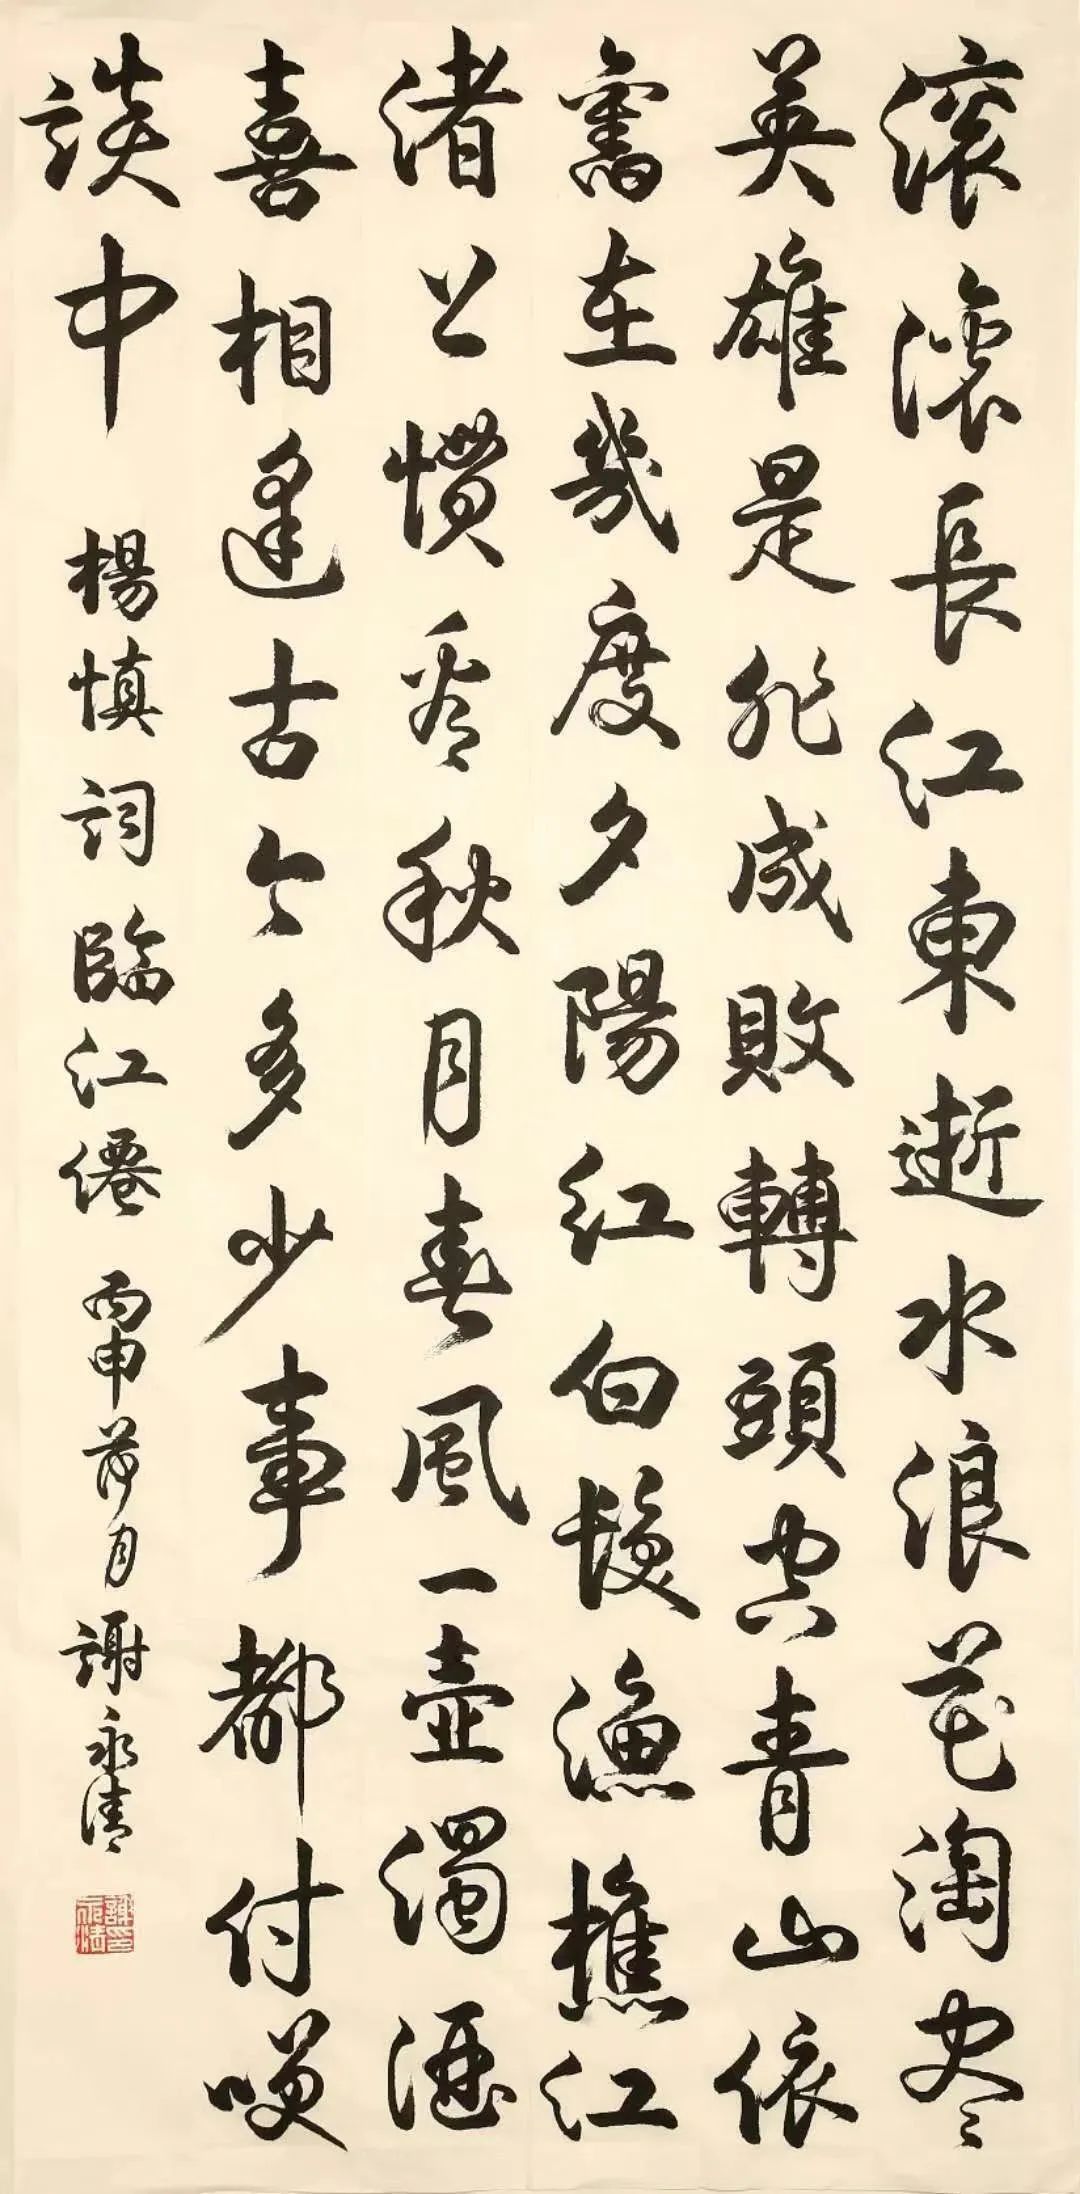 滚滚長江東逝水浪花淘尽
英雄是非成敗轉頭空青山依
舊在幾度夕陽紅白髮漁樵江
渚上慣看秋月春風一壺濁酒
喜相逢古今多少事都付笑
談中
楊慎詞臨江僊 丙申荷月 謝永清
謝永清印